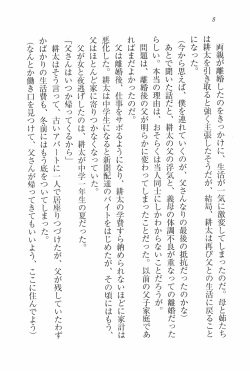 8
両親が離婚したのをきっかけに、生活が一気に激変してしまったのだ。母と姉たち
は耕太を引き取ると強く主張したそうだが、結局、耕太は再び父との生活に戻ること
になった。
「今から思えば、僕を連れていくのが、父さんなりの最後の抵抗だったのかな」
あとで聞いた話だと、耕太の父の浮気と、義母の体調不良が重なっての離婚だったが
らしい。本当の理由は、おそらくは当人同士にしかわからないことだろう。
問題は、離婚後の父が明らかに変わってしまったことだった。以前の父子家庭であ
父は離婚後、仕事をサボるようになり、耕太の学費すら納められないほどに家計は
悪化した。耕太は中学生になると新聞配達のバイトをはじめたが、その頃にはもう、
父はほとんど家に寄りつかなくなっていた。
父が女と夜逃げしたのは、耕太が中学二年生の夏だった。
「父さんはいつか帰ってくるから」
耕太はそう言って、古いアパートに一人で居座りつづけたが、父が残していったわず
かばかりの生活費も、冬前にはもう底をついてしまっていた。
（なんとか働き口を見つけて、父さんが帰ってきてもいいよう、ここに住んでよう）